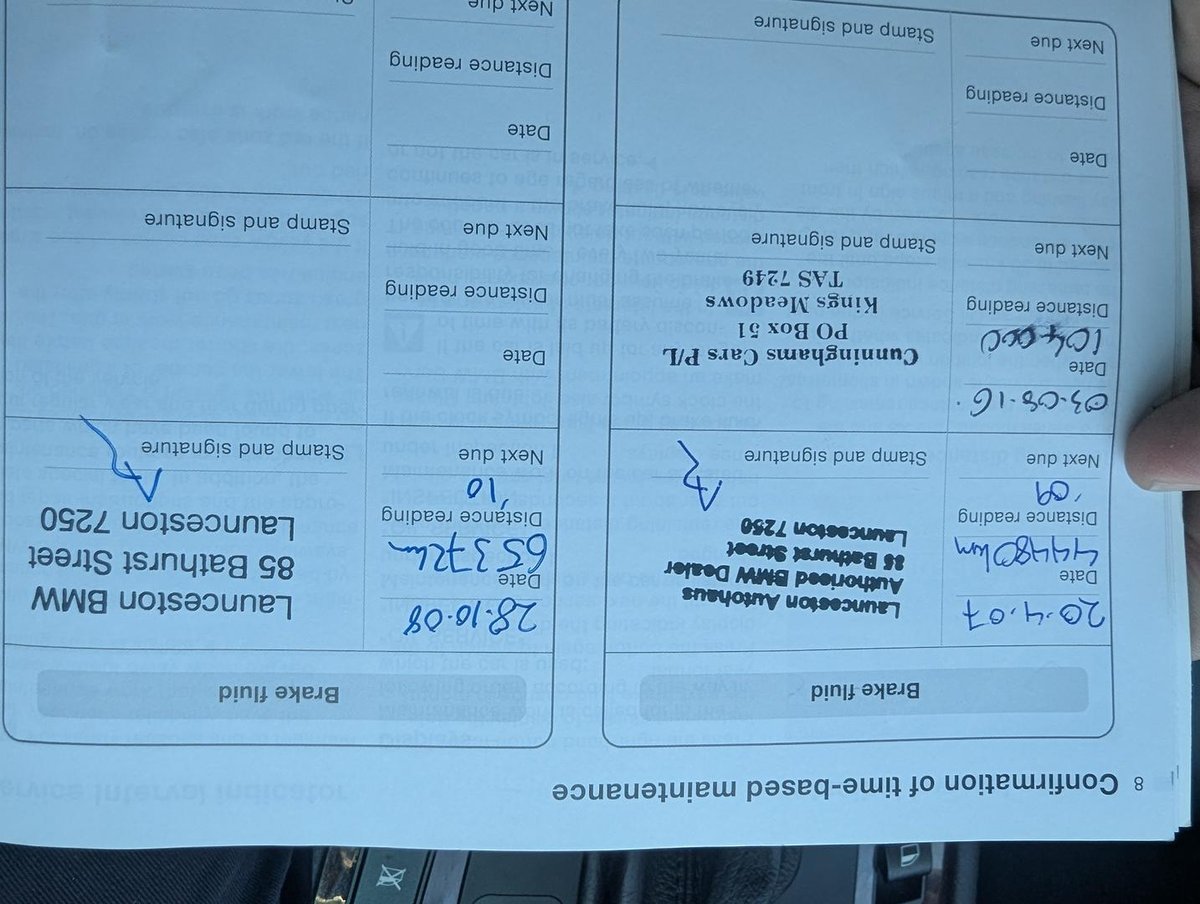 8 Confirmation of time-based maintenance
Brake fluid
20.4.07
Date
44480km
Distance reading
'09
Next due
Launceston Autohaus
Authorised BMW Dealer
85 Bathurst Street
Launceston 7250
Stamp and signature
03.08.16.
Date
104000
Distance reading
Next due
Cunninghams Cars P/L
PO Box 51
Kings Meadows
TAS 7249
Stamp and signature
Date
Distance reading
Next due
Stamp and signature
Brake fluid
28.10.08
Date
65372km
Distance reading
'10
Next due
Launceston BMW
85 Bathurst Street
Launceston 7250
Stamp and signature
Date
Distance reading
Next due
Stamp and signature
Date
Distance reading
Next due